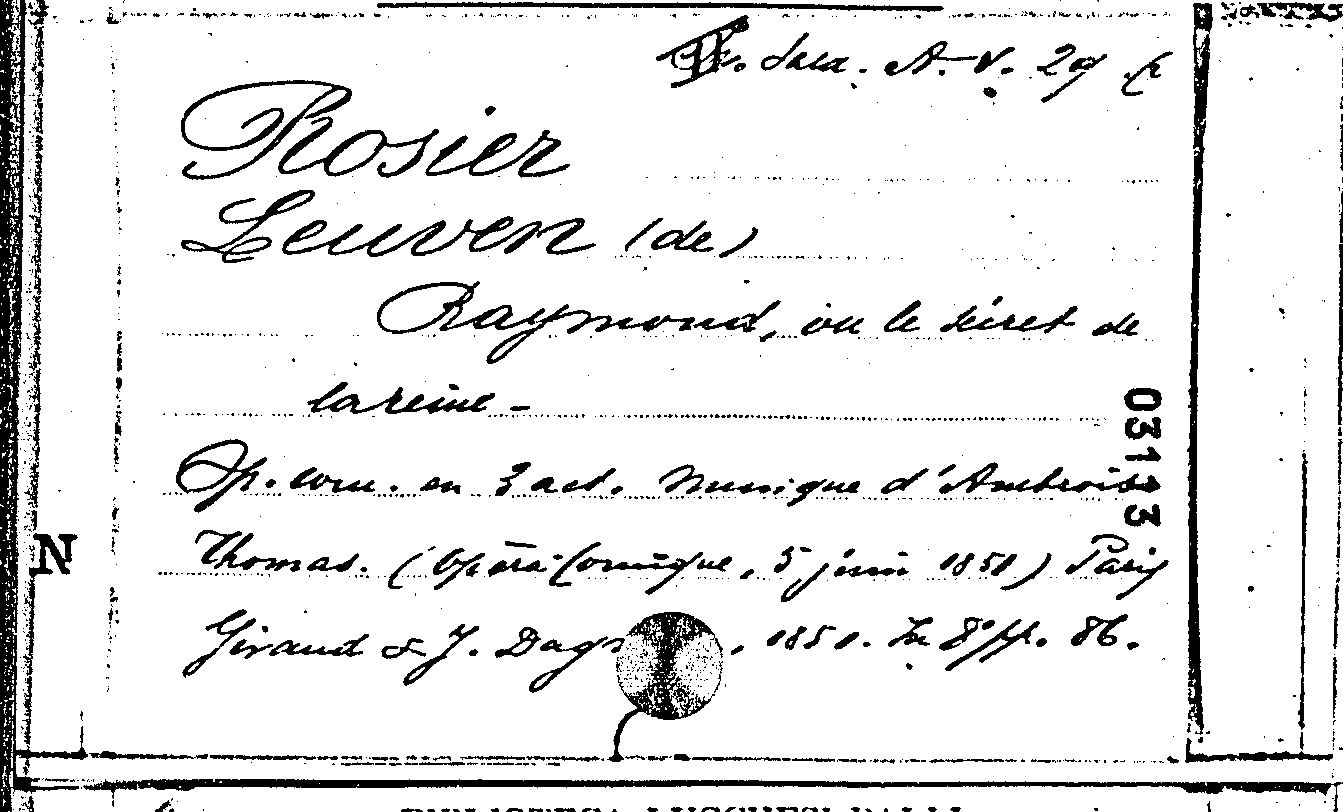 Sala. A. V. 29
Rosier
Leuven (de)
Raymond, ou le sécret de
la reine -
Op. com. en 3 act. Musique d'Ambroise
Thomas. (Opéra-Comique, 5 juin 1851) Paris
Giraud & J. Dagn , 1851. In 8° pp. 86.
03113
N
BIBLIOTECA LUCCHESI-PALLI